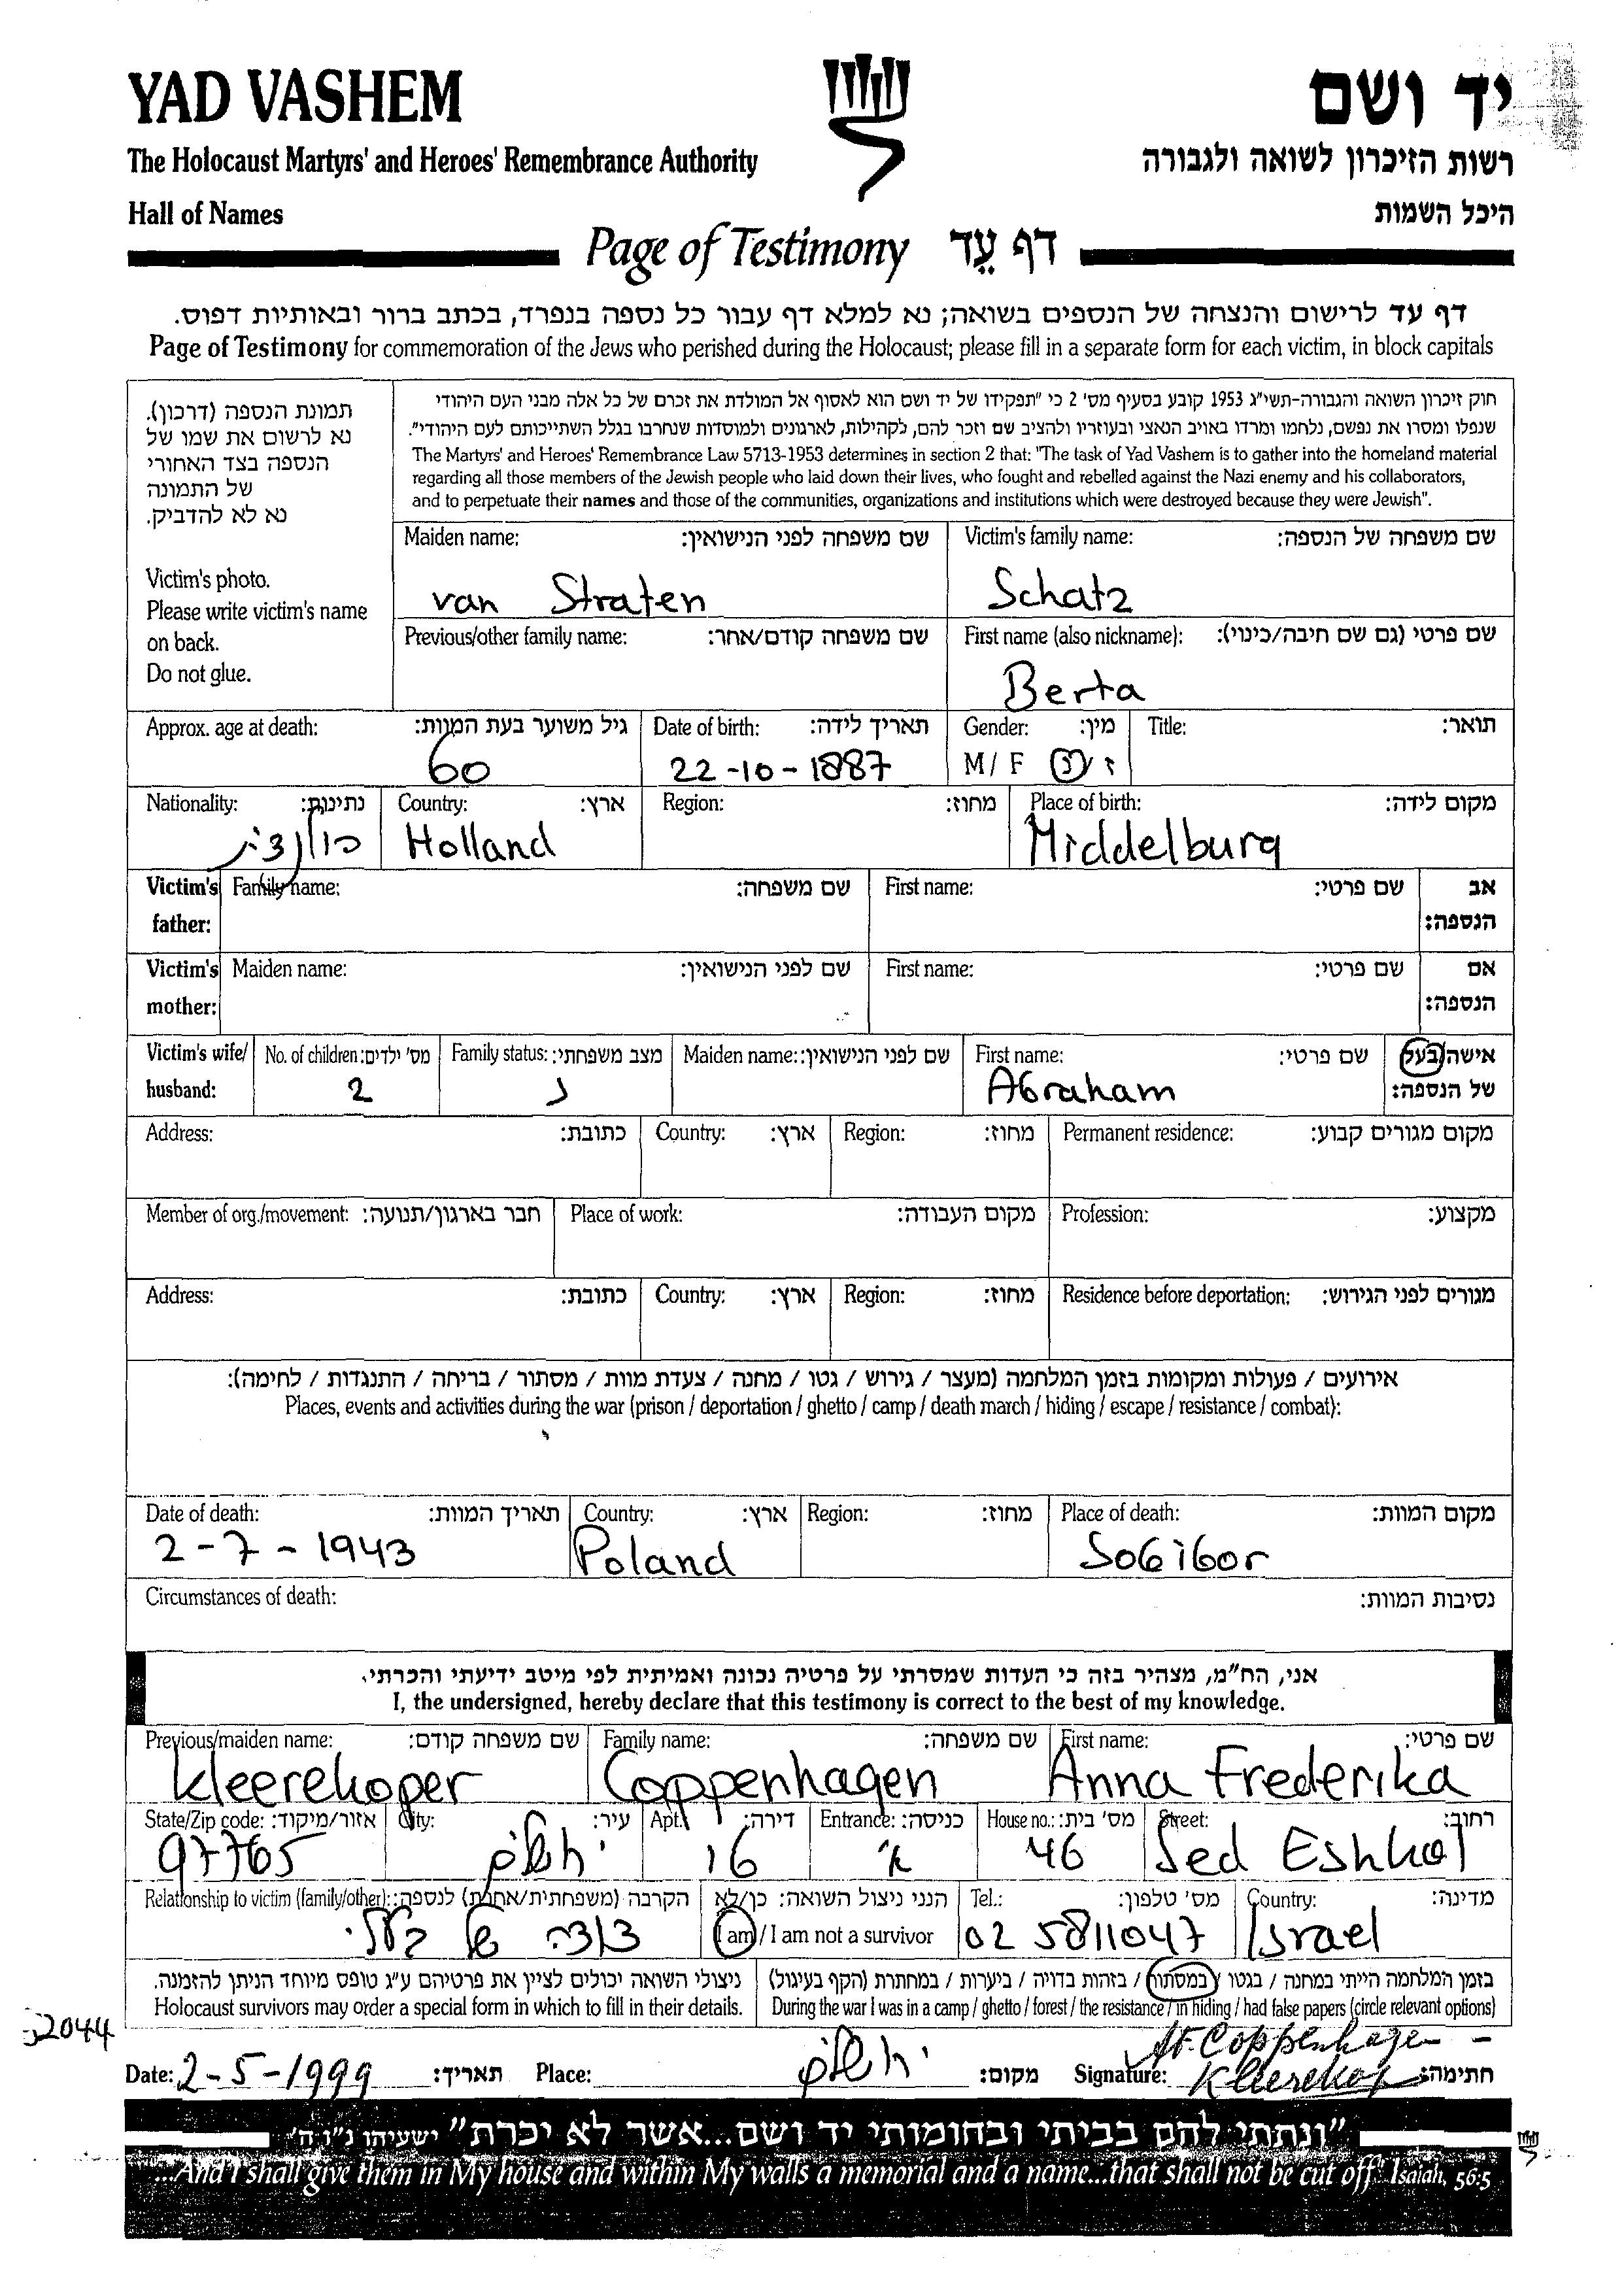 YAD VASHEM
יד ושם
The Holocaust Martyrs' and Heroes' Remembrance Authority
רשות הזיכרון לשואה ולגבורה
Hall of Names
היכל השמות
Page of Testimony דף עֵד
דף עד לרישום והנצחה של הנספים בשואה; נא למלא דף עבור כל נספה בנפרד, בכתב ברור ובאותיות דפוס.
Page of Testimony for commemoration of the Jews who perished during the Holocaust; please fill in a separate form for each victim, in block capitals
תמונת הנספה (דרכון).
נא לרשום את שמו של
הנספה בצד האחורי
של התמונה
נא לא להדביק.
Victim's photo.
Please write victim's name
on back.
Do not glue.
חוק זיכרון השואה והגבורה-תשי"ג 1953 קובע בסעיף מס' 2 כי "תפקידו של יד ושם הוא לאסוף אל המולדת את זכרם של כל אלה מבני העם היהודי
שנפלו ומסרו את נפשם, נלחמו ומרדו באויב הנאצי ובעוזריו ולהציב שם וזכר להם, לקהילות, לארגונים ולמוסדות שנחרבו בגלל השתייכותם לעם היהודי".
The Martyrs' and Heroes' Remembrance Law 5713-1953 determines in section 2 that: "The task of Yad Vashem is to gather into the homeland material
regarding all those members of the Jewish people who laid down their lives, who fought and rebelled against the Nazi enemy and his collaborators,
and to perpetuate their names and those of the communities, organizations and institutions which were destroyed because they were Jewish".
Maiden name: שם משפחה לפני הנישואין: Victim's family name: שם משפחה של הנספה:
van Straten Schatz
Previous/other family name: שם משפחה קודם/אחר: First name (also nickname): שם פרטי (גם שם חיבה/כינוי):
Berta
Approx. age at death: גיל משוער בעת המוות: Date of birth: תאריך לידה: Gender: מין: Title: תואר:
60 22-10-1887 M / F ז / נ
Nationality: נתינות: Country: ארץ: Region: מחוז: Place of birth: מקום לידה:
הולנדית Holland Middelburg
Victim's father: Family name: שם משפחה: First name: שם פרטי: אב הנספה:
Victim's mother: Maiden name: שם לפני הנישואין: First name: שם פרטי: אם הנספה:
Victim's wife/ husband: No. of children: מס' ילדים: Family status: מצב משפחתי: Maiden name: שם לפני הנישואין: First name: שם פרטי: אישה/בעל של הנספה:
2 נ Abraham
Address: כתובת: Country: ארץ: Region: מחוז: Permanent residence: מקום מגורים קבוע:
Member of org./movement: חבר בארגון/תנועה: Place of work: מקום העבודה: Profession: מקצוע:
Address: כתובת: Country: ארץ: Region: מחוז: Residence before deportation: מגורים לפני הגירוש:
אירועים / פעולות ומקומות בזמן המלחמה (מעצר / גירוש / גטו / מחנה / צעדת מוות / מסתור / בריחה / התנגדות / לחימה):
Places, events and activities during the war (prison / deportation / ghetto / camp / death march / hiding / escape / resistance / combat):
Date of death: תאריך המוות: Country: ארץ: Region: מחוז: Place of death: מקום המוות:
2-7-1943 Poland Sobibor
Circumstances of death: נסיבות המוות:
אני, הח"מ, מצהיר בזה כי העדות שמסרתי על פרטיה נכונה ואמיתית לפי מיטב ידיעתי והכרתי.
I, the undersigned, hereby declare that this testimony is correct to the best of my knowledge.
Previous/maiden name: שם משפחה קודם: Family name: שם משפחה: First name: שם פרטי:
Kleerekoper Coppenhagen Anna Frederika
State/Zip code: אזור/מיקוד: City: עיר: Apt.: דירה: Entrance: כניסה: House no.: מס' בית: Street: רחוב:
97765 ירושלים 16 א 46 Sed Eshkol
Relationship to victim (family/other): הקרבה (משפחתית/אחרת) לנספה: הנני ניצול השואה: כן/לא Tel.: מס' טלפון: Country: מדינה:
דודה של בעלי I am / I am not a survivor 02 5811047 Israel
ניצולי השואה יכולים לציין את פרטיהם ע"ג טופס מיוחד הניתן להזמנה.
Holocaust survivors may order a special form in which to fill in their details.
בזמן המלחמה הייתי במחנה / בגטו / במסתור / בזהות בדויה / ביערות / במחתרת (הקף בעיגול)
During the war I was in a camp / ghetto / forest / the resistance / in hiding / had false papers (circle relevant options)
Coppenhagen -
Date: 2-5-1999 תאריך: Place: ירושלים מקום: Signature: Kleerekoper חתימה:
"ונתתי להם בביתי ובחומותי יד ושם...אשר לא יכרת" ישעיהו נ"ו ה'
"...And I shall give them in My house and within My walls a memorial and a name...that shall not be cut off." Isaiah, 56:5